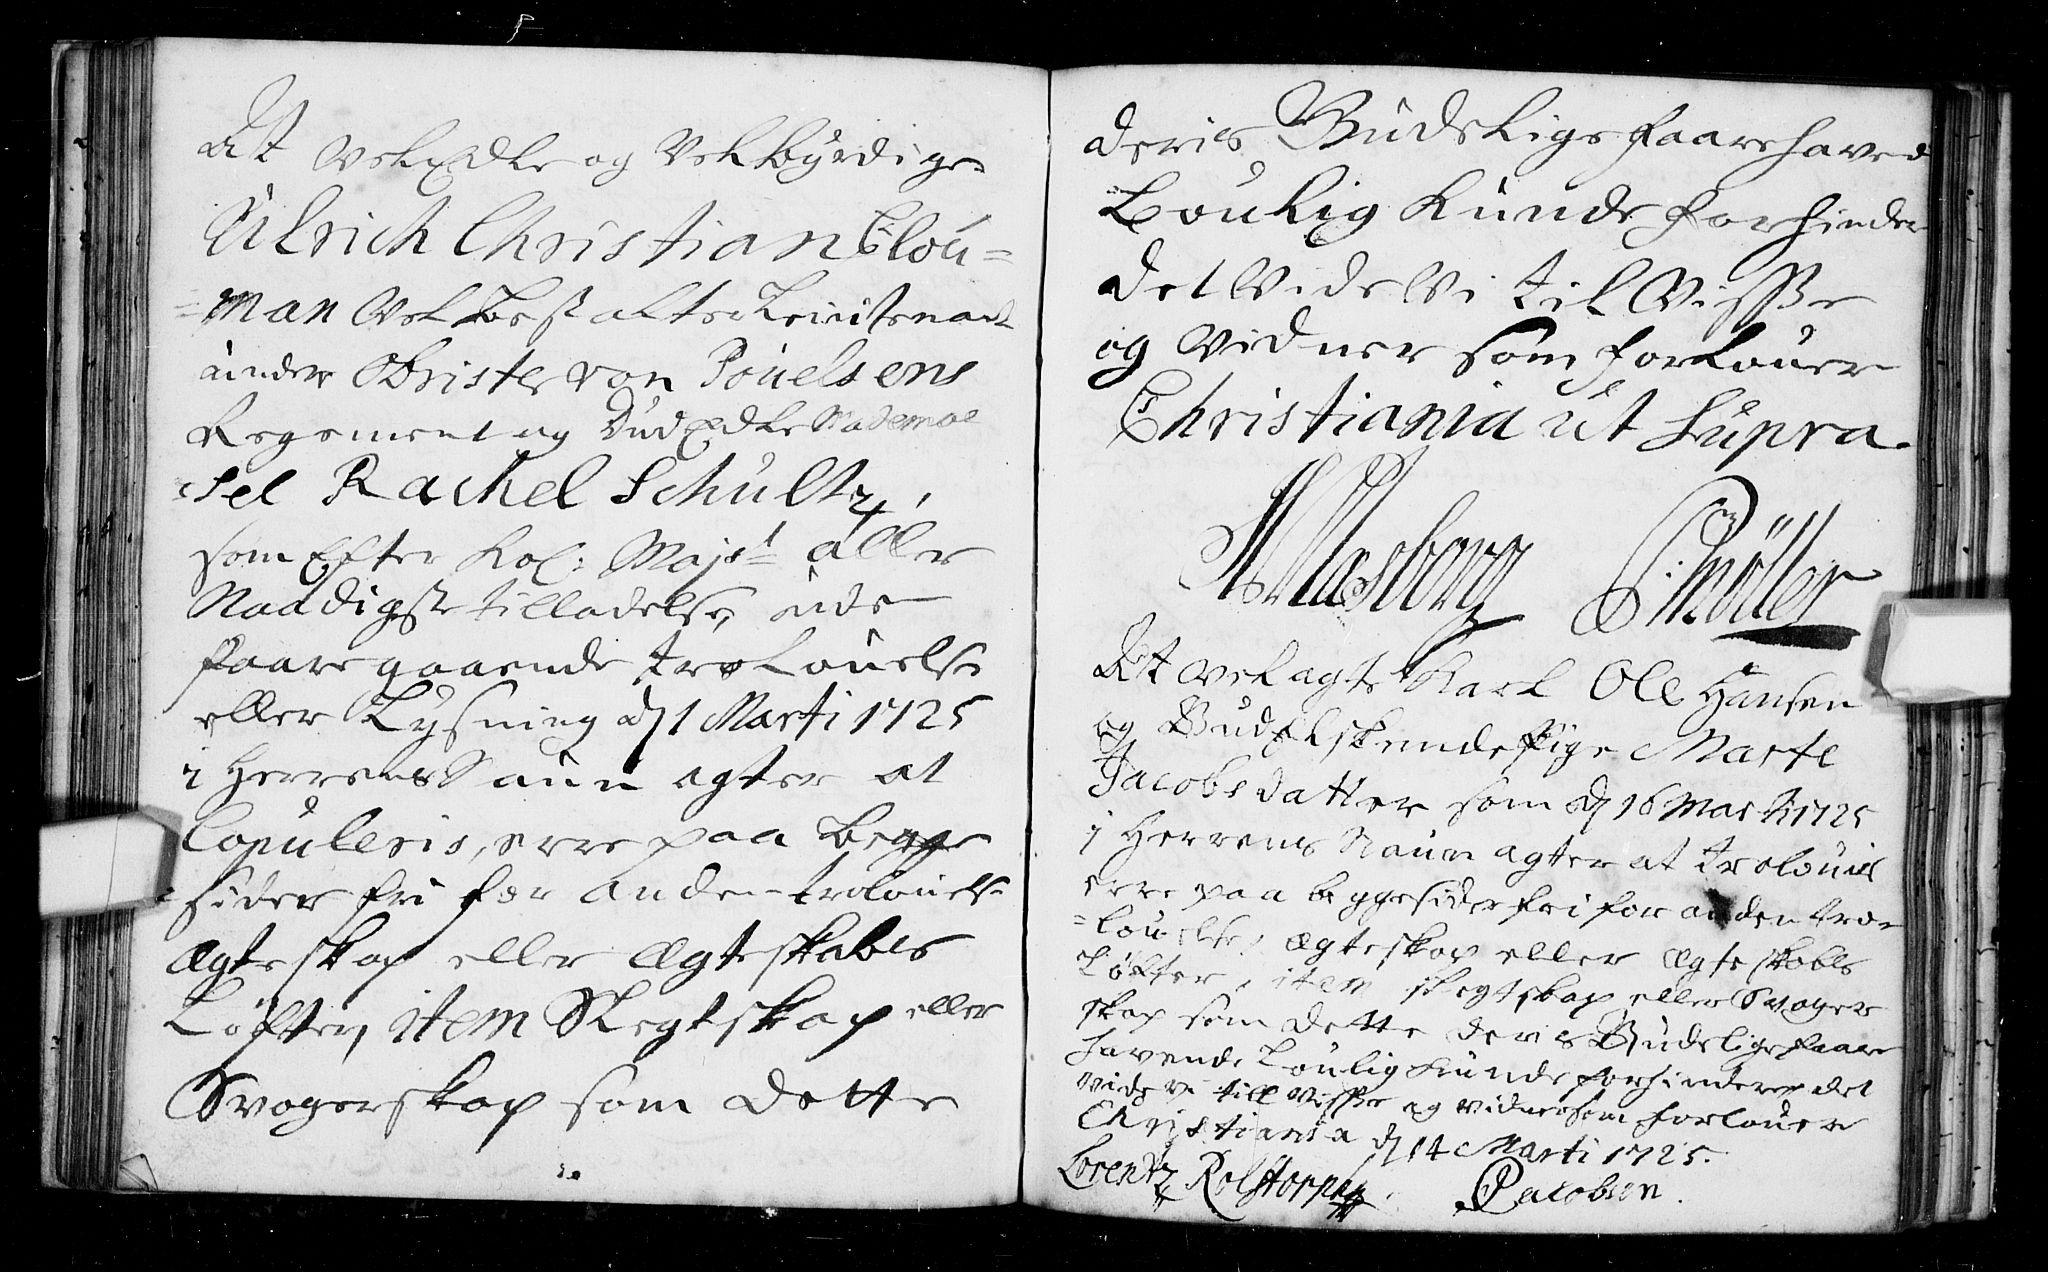 At VelEdle og Velbyrdige
Ulrich Christian Clou-
=man Velbestalter Leiütenant
ünder Obriste von Poüelsens
Regement og DüdEdle Mademoe
=sel Rachel Schultz,
som Efter Kol: Majst aller
Naadigste tilladelse, üden
faaregaaende troloüelse
eller Lysning d 1 Marti 1725
i Herrens Naün agter at
Copuleris, erre paa begge
sider fri for anden troloüelse
Ægteskap eller Ægteskabes
Løfter, item Slegtskap eller
Svogerskap som dette
deris Büdelige faarehavend
Loulig kunde forhinder
det Vide Vi til Visse
og Vidner som forlover
Christiania ut Supra.
Möller
At velagte Karl Ole Hansen
og Gudelskende Pige Marte
Jacobsdatter som d 16 Marti 1725
i Herrens Naun agter at troloüis
erre paa begge sider fri for anden troe
=louelse, ægteskap eller Ægteskabes
Løfter, item slegtskap eller Svoger
skap som dette deris Büdelige faare
havende Loulig kunde forhindere, det
vide vi till visse og vidner som forlover
Christiania d 14 Marti 1725.
Lorentz Rolstorph P Jacobsen.